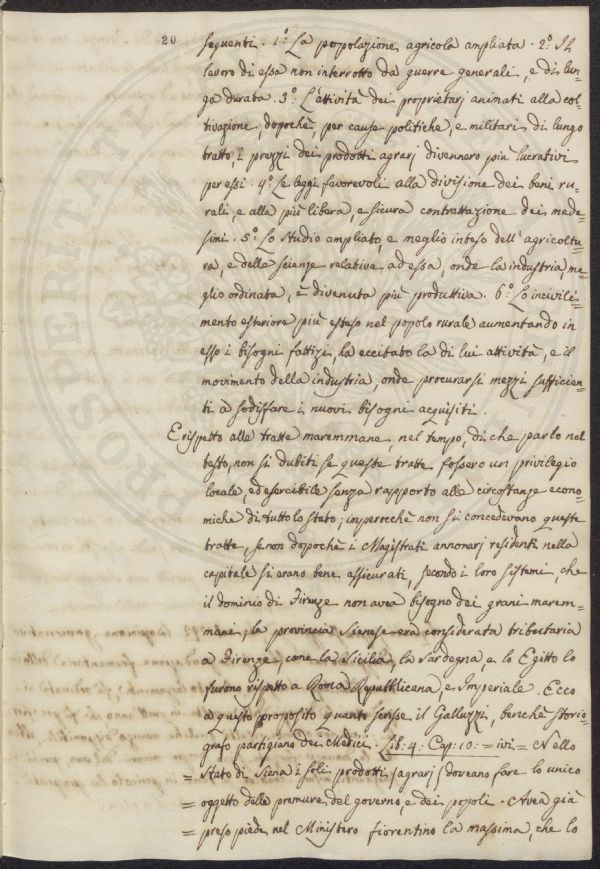 20
seguenti. 1.º La popolazione agricola ampliata. 2.º Il
lavoro di essa non interrotto da guerre generali, e di lun=
ga durata. 3.º L'attività dei proprietarj animati alla col=
tivazione, dopochè, per cause politiche, e militari di lungo
tratto, i prezzi dei prodotti agrarj divennero più lucrativi
per essi. 4.º Le leggi favorevoli alla divisione dei beni ru=
rali, e alla più libera, e sicura contrattazione dei mede=
simi. 5.º Lo studio ampliato, e meglio inteso dell'agricoltu=
ra, e delle scienze relative ad essa, onde la industria, me=
glio ordinata, è divenuta più produttiva. 6.º Lo incivili=
mento esteriore più esteso nel popolo rurale aumentando in
esso i bisogni fattizj, ha eccitato la di lui attività, e il
movimento della industria, onde procurarsi mezzi sufficien=
ti a sodisfare i nuovi bisogni acquisiti.
E rispetto alle tratte maremmane, nel tempo, di che parlo nel
testo, non si dubiti se queste tratte fossero un privilegio
locale, ed esercibile senza rapporto alle circostanze econo=
miche di tutto lo stato; imperocchè non si concedevano queste
tratte, se non dopochè i Magistrati annonarj residenti nella
capitale si erano bene assicurati, secondo i loro sistemi, che
il dominio di Firenze non avea bisogno dei grani marem=
mani; la provincia Sienese era considerata tributaria
a Firenze, come la Sicilia, la Sardegna, e lo Egitto lo
furono rispetto a Roma Repubblicana e Imperiale. Ecco
a questo proposito quanto scrisse il Galluzzi, benchè storio=
grafo partigiano dei Medici. Lib: 4. Cap: 10. = ivi = Nello
= Stato di Siena i soli prodotti agrarj doveano fare lo unico
= oggetto delle premure del governo, e dei popoli. Avea già
= preso piede nel Ministero fiorentino la massima, che lo
PROSPERITATI